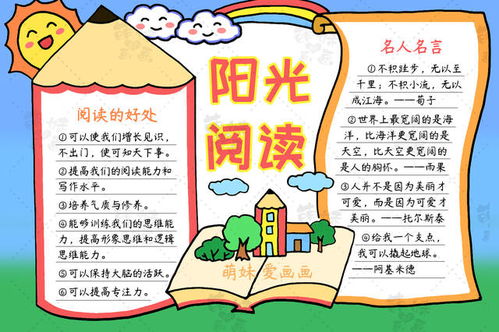 阳光
阅读
阅读的好处
①可以使我们增长见识，
不出门，便可知天下事。
②提高我们的阅读能力和
写作水平。
③培养气质与修养。
④能够训练我们的思维能
力，提高形象思维和逻辑
思维能力。
⑤可以保持大脑的活跃。
⑥可以提高专注力。
名人名言
①不积跬步，无以至
千里；不积小流，无以
成江海。——荀子
②世界上最宽阔的是海
洋，比海洋更宽阔的是
天空，比天空更宽阔的
是人的胸怀。——雨果
③人并不是因为美丽才
可爱，而是因为可爱才
美丽。——托尔斯泰
④给我一个支点，
我可以撬起地球。
——阿基米德
萌妹 爱画画